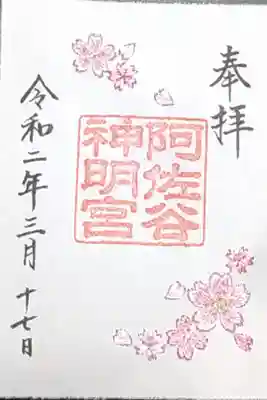 奉拝
阿佐谷
神明宮
令和二年三月十七日